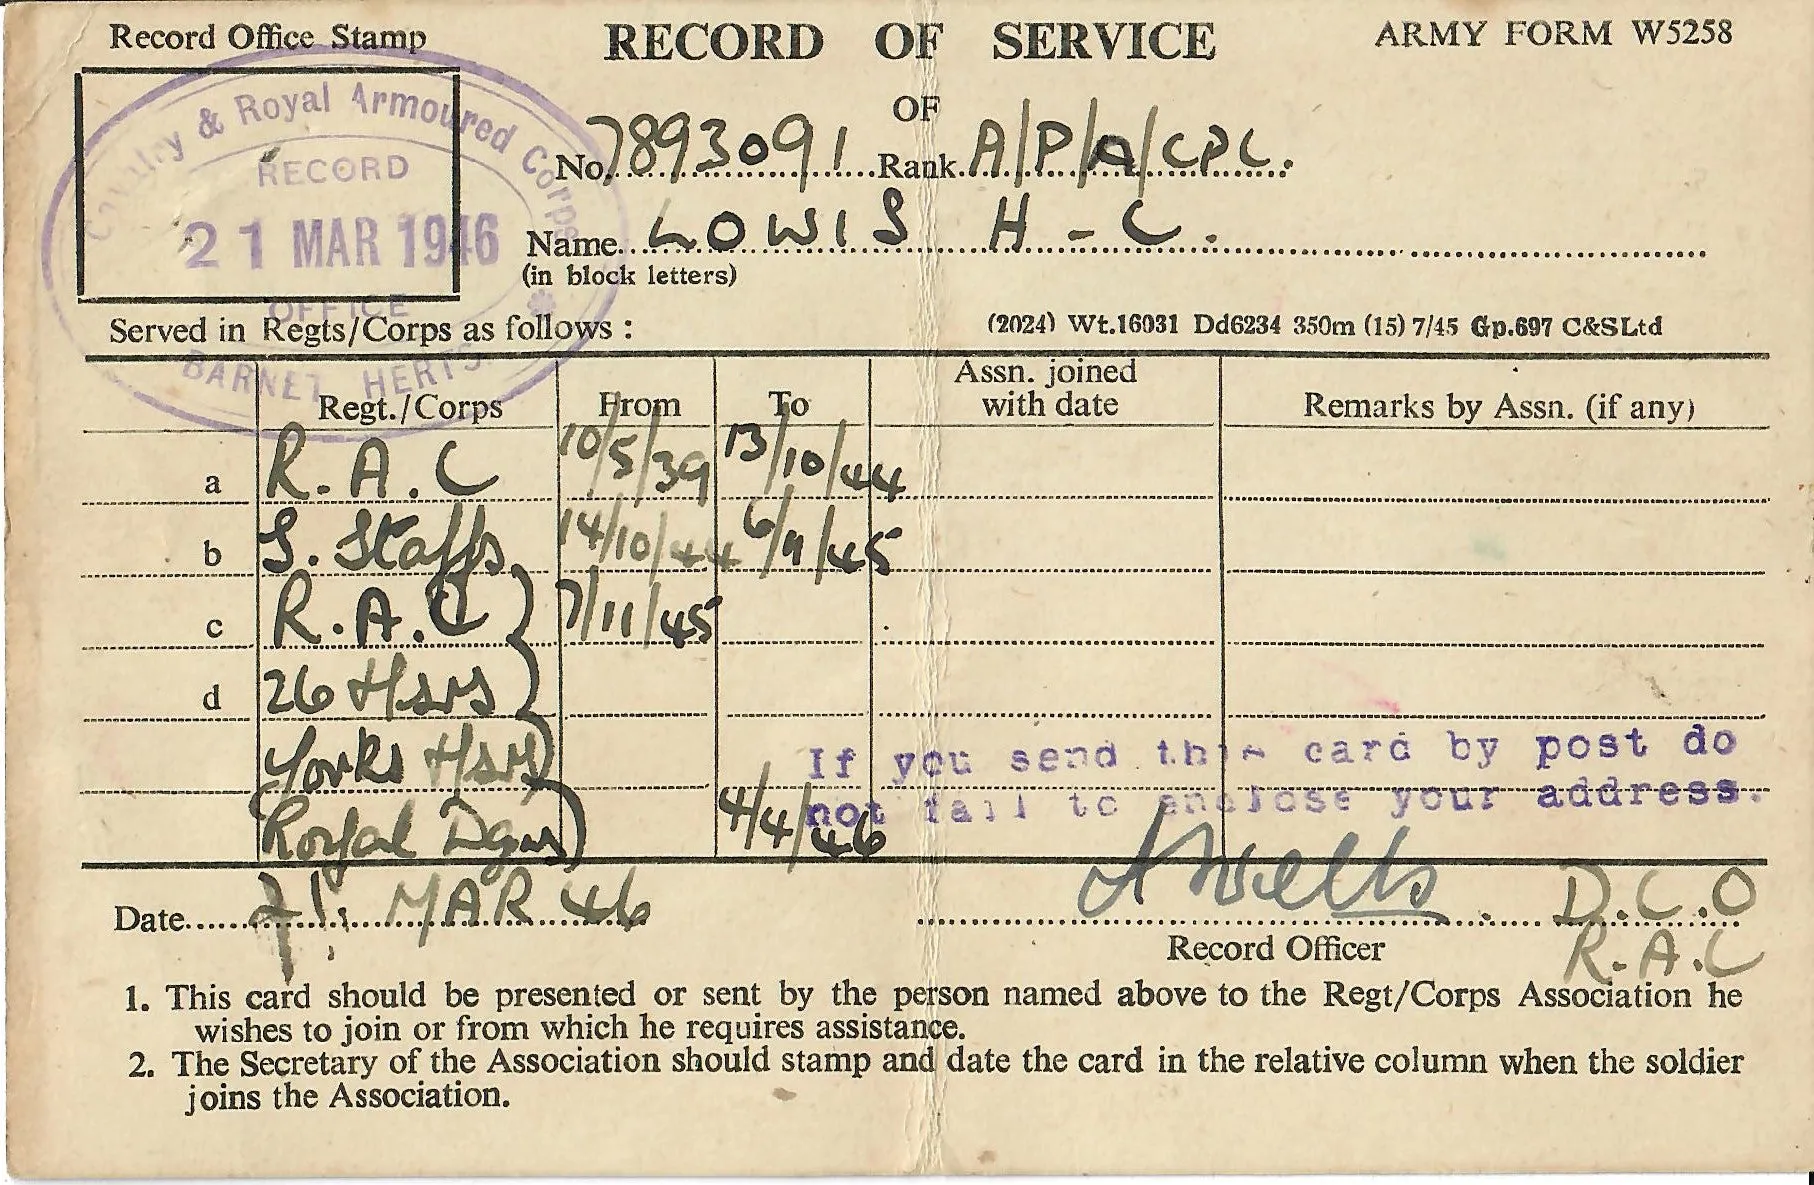 Record Office Stamp
RECORD OF SERVICE
ARMY FORM W5258
OF
Cavalry & Royal Armoured Corps
RECORD
21 MAR 1946
OFFICE
BARNET HERTS.
No. 7893091 Rank A/P/A/CPL.
Name LOWIS H-C.
(in block letters)
Served in Regts/Corps as follows :
(2024) Wt.16031 Dd6234 350m (15) 7/45 Gp.697 C&S Ltd
Regt./Corps From To Assn. joined with date Remarks by Assn. (if any)
a R.A.C 10/5/39 13/10/44
b S. Staffs 14/10/44 6/11/45
c R.A.C } 7/11/45
d 26 Hsrs }
Yorks Hsrs }
Royal Dgns } 4/4/46
If you send this card by post do
not fail to enclose your address.
Date 21. MAR 46
Wells D.C.O
R.A.C
Record Officer
1. This card should be presented or sent by the person named above to the Regt/Corps Association he
wishes to join or from which he requires assistance.
2. The Secretary of the Association should stamp and date the card in the relative column when the soldier
joins the Association.